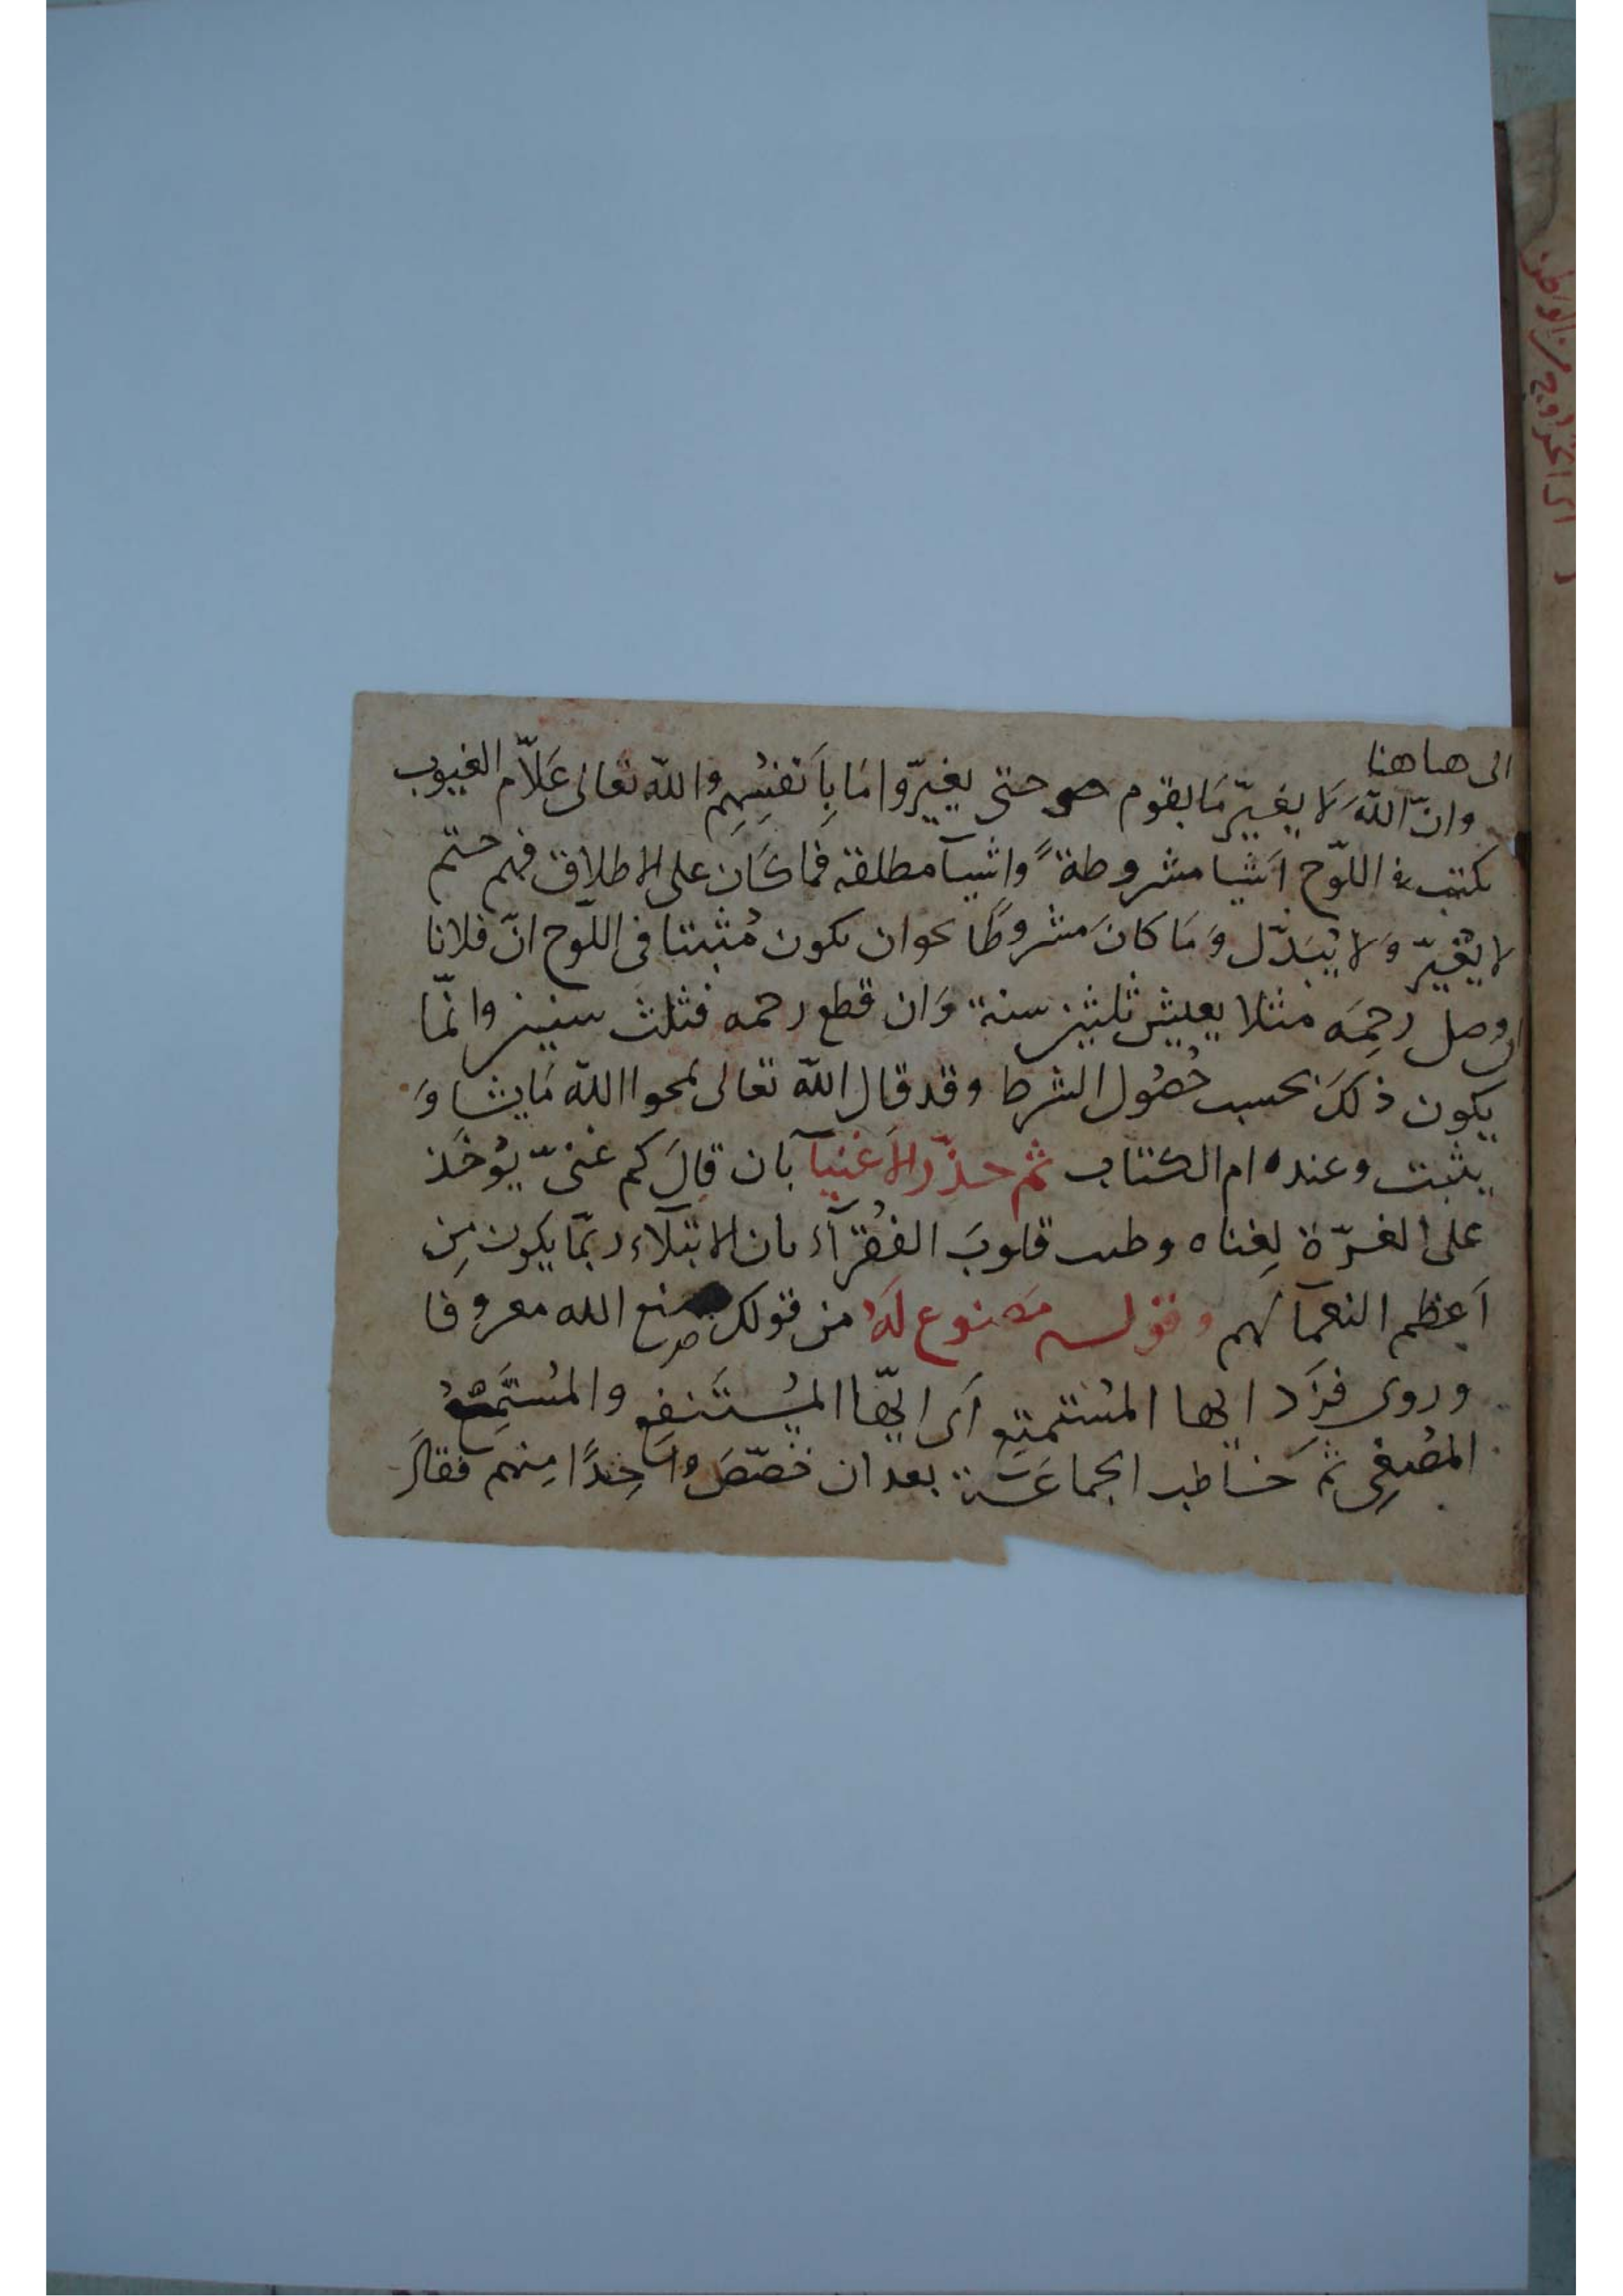 الى هاهنا
وانّ اللهَ لَا يغيّر مَا بقوم حتى يغيّروا مَا بِاَنفسِهِم والله تعَالى عَلاّم الغيوب
يكتب في اللّوح اَشيا مشروطةً واشيآ مطلقة فما كَان على الاطلاق فهم حتم
لا يُغيّر وَلا يُبَدّل وَمَا كانَ مشروطًا نحو ان يكون مُثبتا فى اللّوح انّ فلانا
ان وصل رحِمَه مثلا يعيش ثلثين سنة وَان قطع رحمه فثلث سنين وانّما
يكون ذلكَ بحسب حُصُول الشرط وقد قال الله تعالى يمحوا الله مَا يشا وَ
يثبت وعنده ام الكتاب ثم حذّر الاَغنيآ بان قالَ كم غنىّ يُوخَذ
على الغرّة لِغناه وطيب قلوبَ الفُقرآء بان الابتلاء ربّما يكون مِن
اَعظم النعمآ لهم وقوله مَصنوع لَهُ من قولك صنع الله معروفا
وروى فزِد ايها المُستمتِع اَى ايّها المُستَنفِع والمُستَمِعُ
المُصغِى ثم خَاطب الجماعَة بعد ان خصّصَ وَاحِدًا مِنهم فقالَ